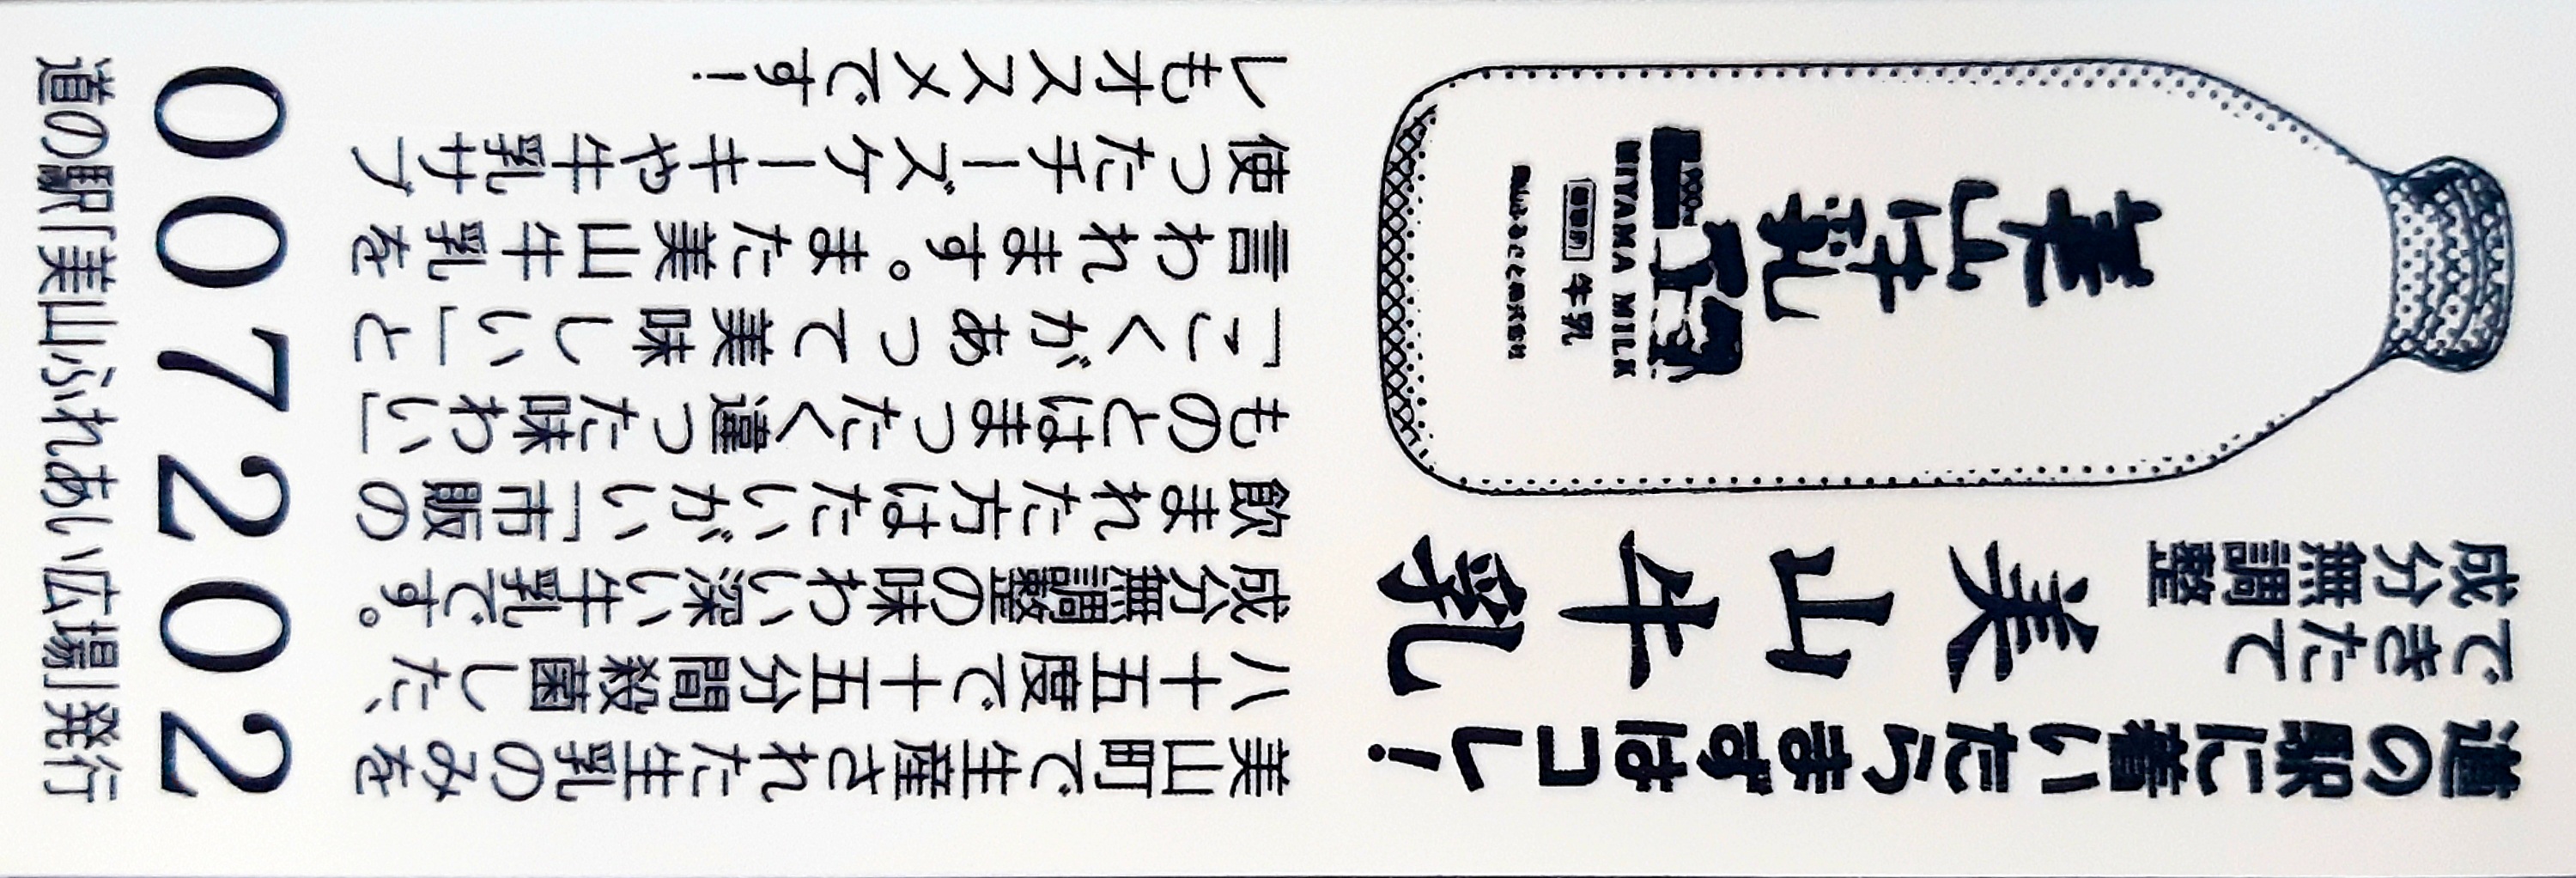 道の駅に着いたらまずはコレ！
できたて
成分無調整
美山牛乳
美山牛乳
MIYAMA MILK
牛乳
美山町で生産された生乳のみを
八十五度で十五分間殺菌した、
成分無調整の味わい深い牛乳です。
飲まれた方はたいがい「市販の
ものとはまったく違った味わい」
「こくがあって美味しい」と
言われます。また美山牛乳を
使ったチーズケーキや牛乳サブ
レもオススメです！
007202
道の駅「美山ふれあい広場」発行